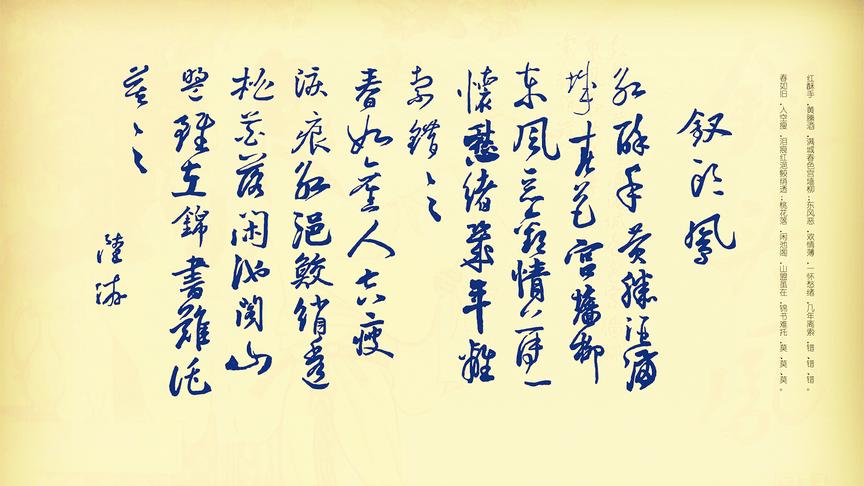 红酥手，黄縢酒，满城春色宫墙柳；东风恶，欢情薄，一怀愁绪，几年离索，错，错，错。
春如旧，人空瘦，泪痕红浥鲛绡透；桃花落，闲池阁，山盟虽在，锦书难托，莫，莫，莫。
釵头鳳
红酥手黄縢酒满
城春色宫墙柳
东风恶歡情薄一
懷愁緒幾年離
索錯々々
春如舊人空瘦
淚痕红浥鮫綃透
桃花落闲池阁山
盟雖在錦書難託
莫々々
陸游